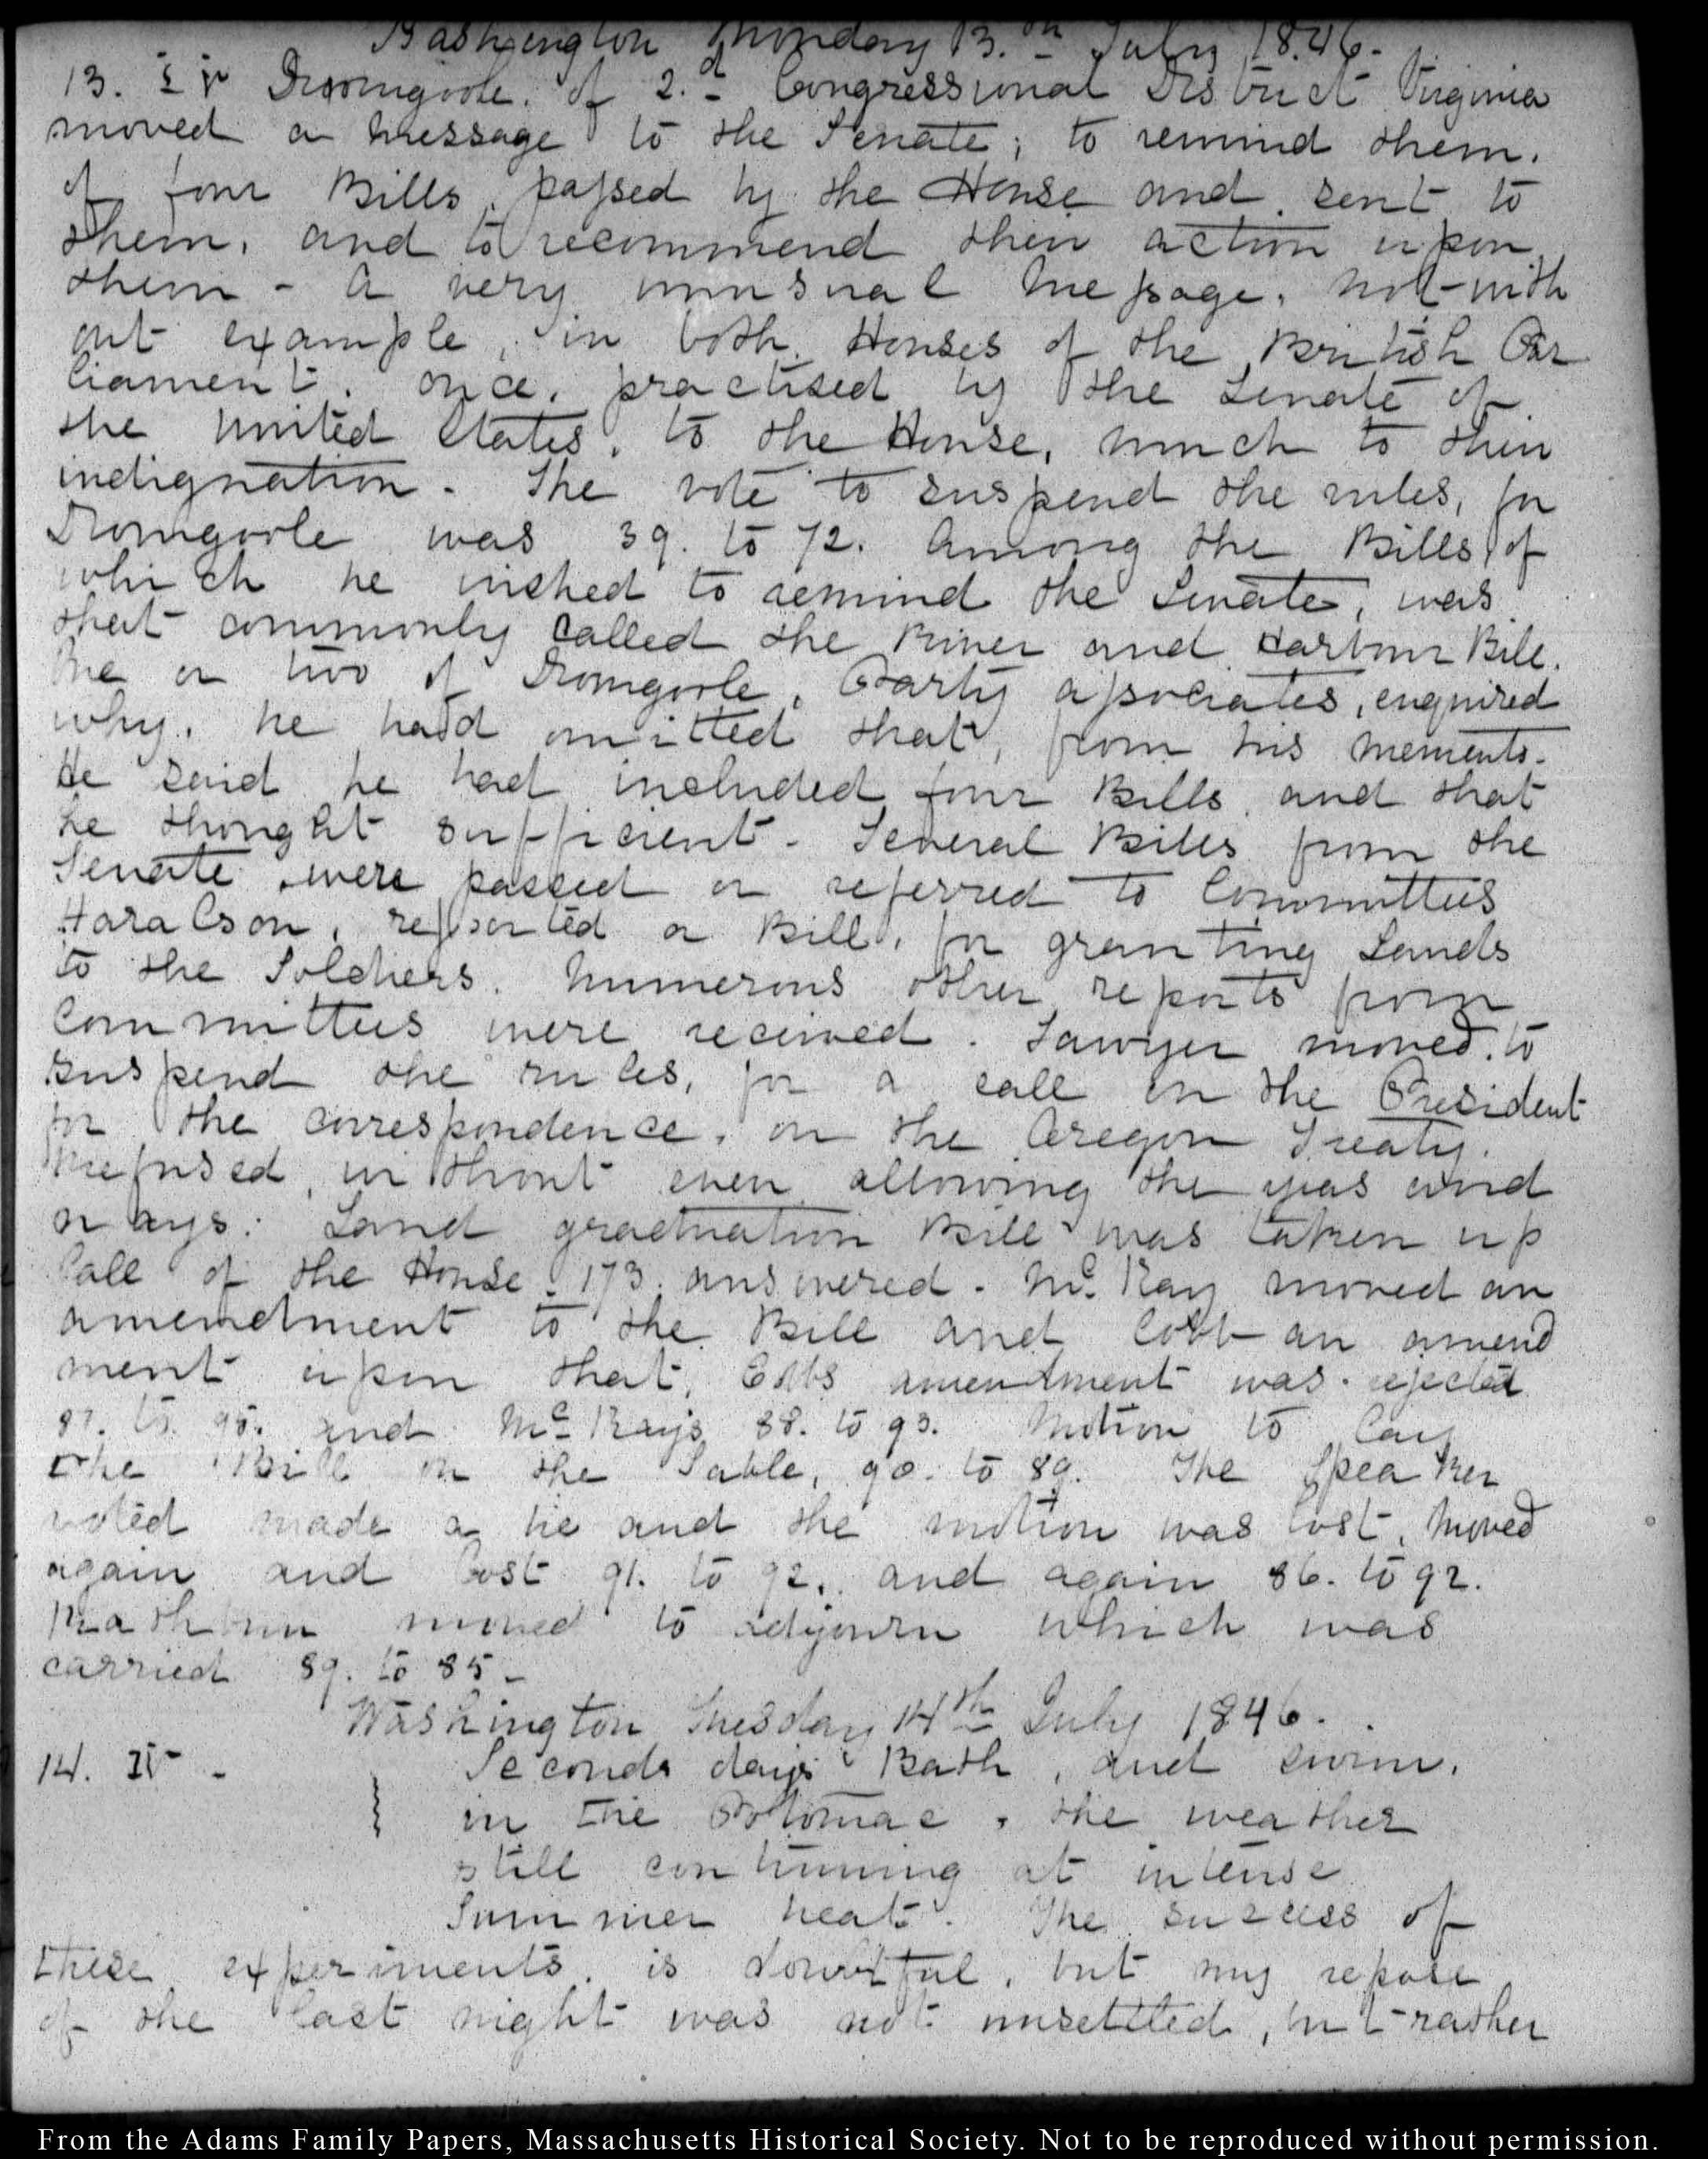 Washington Monday 13.th July 1846-
13. Dromgoole. of 2.d Congressional District Virginia
moved a message to the Senate; to remind them.
of four Bills, passed by the House and sent to
them, and to recommend their action upon
them - a very unusual message, not with
out example, in both Houses of the British Par
liament, once, practised by the Senate of
the United States, to the House, much to their
indignation. The vote to suspend the rules, for
Dromgoole was 39. to 72. Among the Bills of
which he wished to remind the Senate, was
that commonly called the River and Harbour Bill.
One or two of Dromgoole, Party associates, enquired
why, he had omitted that, from his memento.
He said he had included four Bills, and that
he thought sufficient - Several Bills from the
Senate were passed or referred to Committees
Haralson, reported a Bill, for granting Lands
to the Soldiers. Numerous other reports from
Committees were received. Sawyer moved to
suspend the rules, for a call on the President
for the correspondence, on the Oregon Treaty.
Refused, without even allowing the yeas and
nays. Land graduation Bill was taken up
Call of the House. 173. answered - McKay moved an
amendment to the Bill and Cobb an amend
ment upon that. Cobbs amendment was rejected
to 95. and McKays 88. to 93. Motion to lay
the Bill on the Table, 90. to 89. The Speaker
voted made a tie and the motion was lost, moved
again and lost 91. to 92. and again 86. to 92.
Rathbun moved to adjourn which was
carried 89. to 85 -
Washington Tuesday 14th July 1846.
14. IV - Seconds days Bath, and swim,
in the Potomac, the weather
still continuing at intense
Summer heat. The success of
these experiments, is doubtful, but my repose
of the last night was not unsettled, but rather
From the Adams Family Papers, Massachusetts Historical Society. Not to be reproduced without permission.